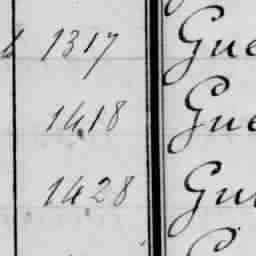 1317 Gue
1418 Gue
1428 Gu